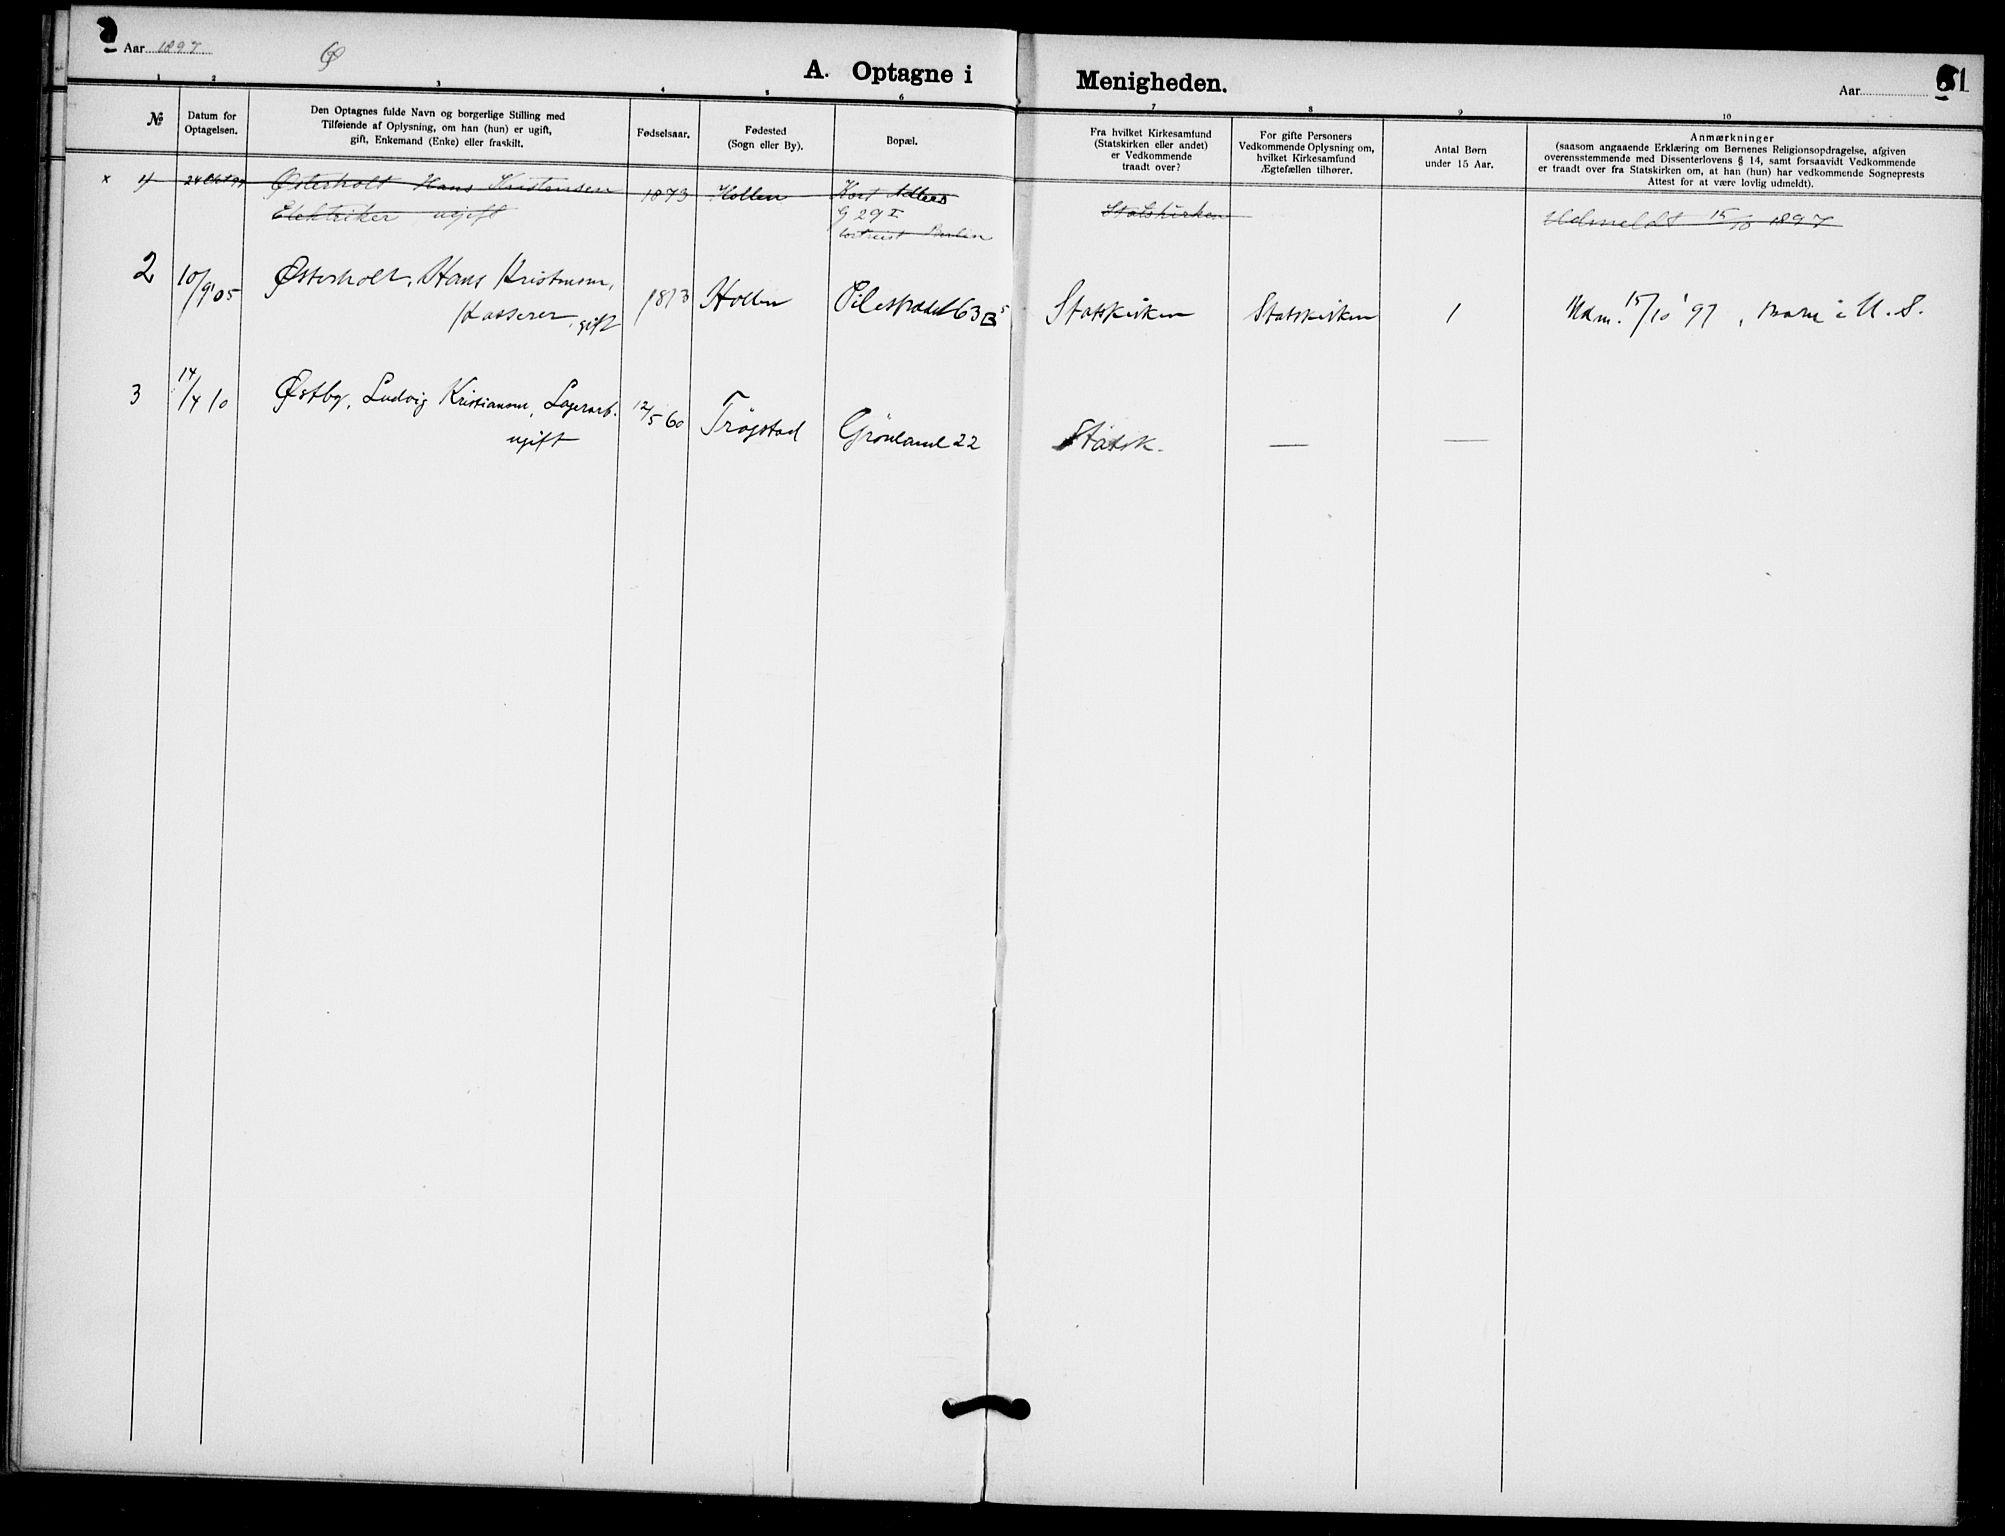 Aar 1897
Ø
A. Optagne i Menigheden.
Aar
51
1 2 3 4 5 6 7 8 9 10
№
Datum for
Optagelsen.
Den Optagnes fulde Navn og borgerlige Stilling med
Tilføiende af Oplysning, om han (hun) er ugift,
gift, Enkemand (Enke) eller fraskilt.
Fødselsaar.
Fødested
(Sogn eller By).
Bopæl.
Fra hvilket Kirkesamfund
(Statskirken eller andet)
er Vedkommende
traadt over?
For gifte Personers
Vedkommende Oplysning om,
hvilket Kirkesamfund
Ægtefællen tilhører.
Antal Børn
under 15 Aar.
Anmærkninger
(saasom angaaende Erklæring om Børnenes Religionsopdragelse, afgiven
overensstemmende med Dissenterlovens § 14, samt forsaavidt Vedkommende
er traadt over fra Statskirken om, at han (hun) har vedkommende Sogneprests
Attest for at være lovlig udmeldt).
x 24 Okt 97 Østerholt Hans Kristensen 1873 Hollen Kort Adlers
Elektriker ugift G 29 I Statskirken Udmeldt 15/10 1897
Berlin
2 10/9 05 Østerholt, Hans Kristensen, 1873 Hollen Pilestrædet 63 B 5 Statskirken Statskirken 1 Udm. 15/10 '97, Barn i U. S.
Kasserer, gift
3 14/4 10 Østby, Ludvig Kristiansen, Lagerarb. 12/5 60 Trøgstad Grönland 22 Statsk. — —
ugift